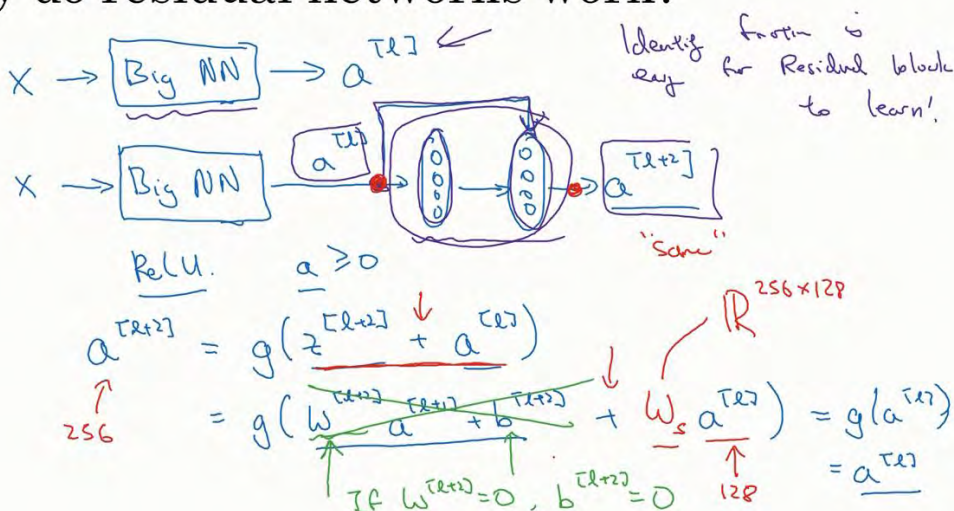 y do residual networks work?
X → Big NN → a^[l] ←
Identity function is
easy for Residual block
to learn!
X → Big NN → a^[l] → a^[l+2]
"same"
ReLU. a ≥ 0
ℝ^256×128
a^[l+2] = g(z^[l+2] + a^[l])
= g(W^[l+2] a^[l+1] + b^[l+2] + W_s a^[l]) = g(a^[l])
256
= a^[l]
If W^[l+2] = 0, b^[l+2] = 0
128